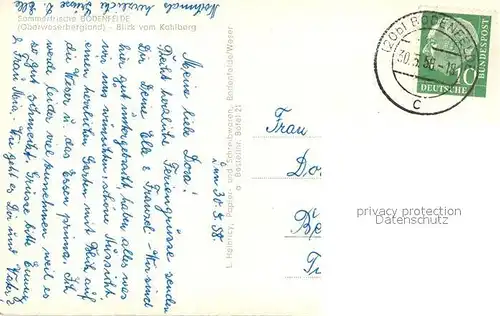 Nochmals herzliche Grüsse E. Elle
Sommerfrische BODENFELDE
(Oberweserbergland) - Blick vom Kahlberg
d. 30.5.58.
Meine liebe Dora!
Recht herzliche Feriengrüsse senden
Dir Deine Elle & Franzel - Wir sind
hier gut untergebracht, haben alles was
wir uns wünschten; schöne Aussicht,
einen herrlichen Garten mit Blick auf
die Weser u. das Essen prima. Ich
werde leider viel zunehmen weil es
so gut schmeckt. Grüsse bitte
Frau Wie geht es Dir und Vater?
L. Papier- und Schreibwaren, Bodenfelde-Weser
(20b) BODENFELDE
30.5.58.-18
c
DEUTSCHE BUNDESPOST
10
Frau
Do
Be
privacy protection
Datenschutz